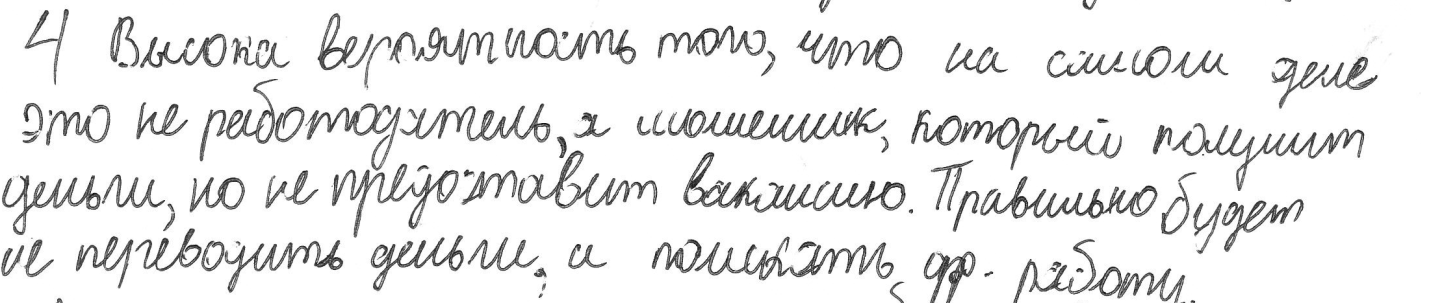 4 Высока вероятность того, что на самом деле
это не работодатель, а мошенник, который получит
деньги, но не предоставит вакансию. Правильно будет
не переводить деньги, и поискать др. работу.